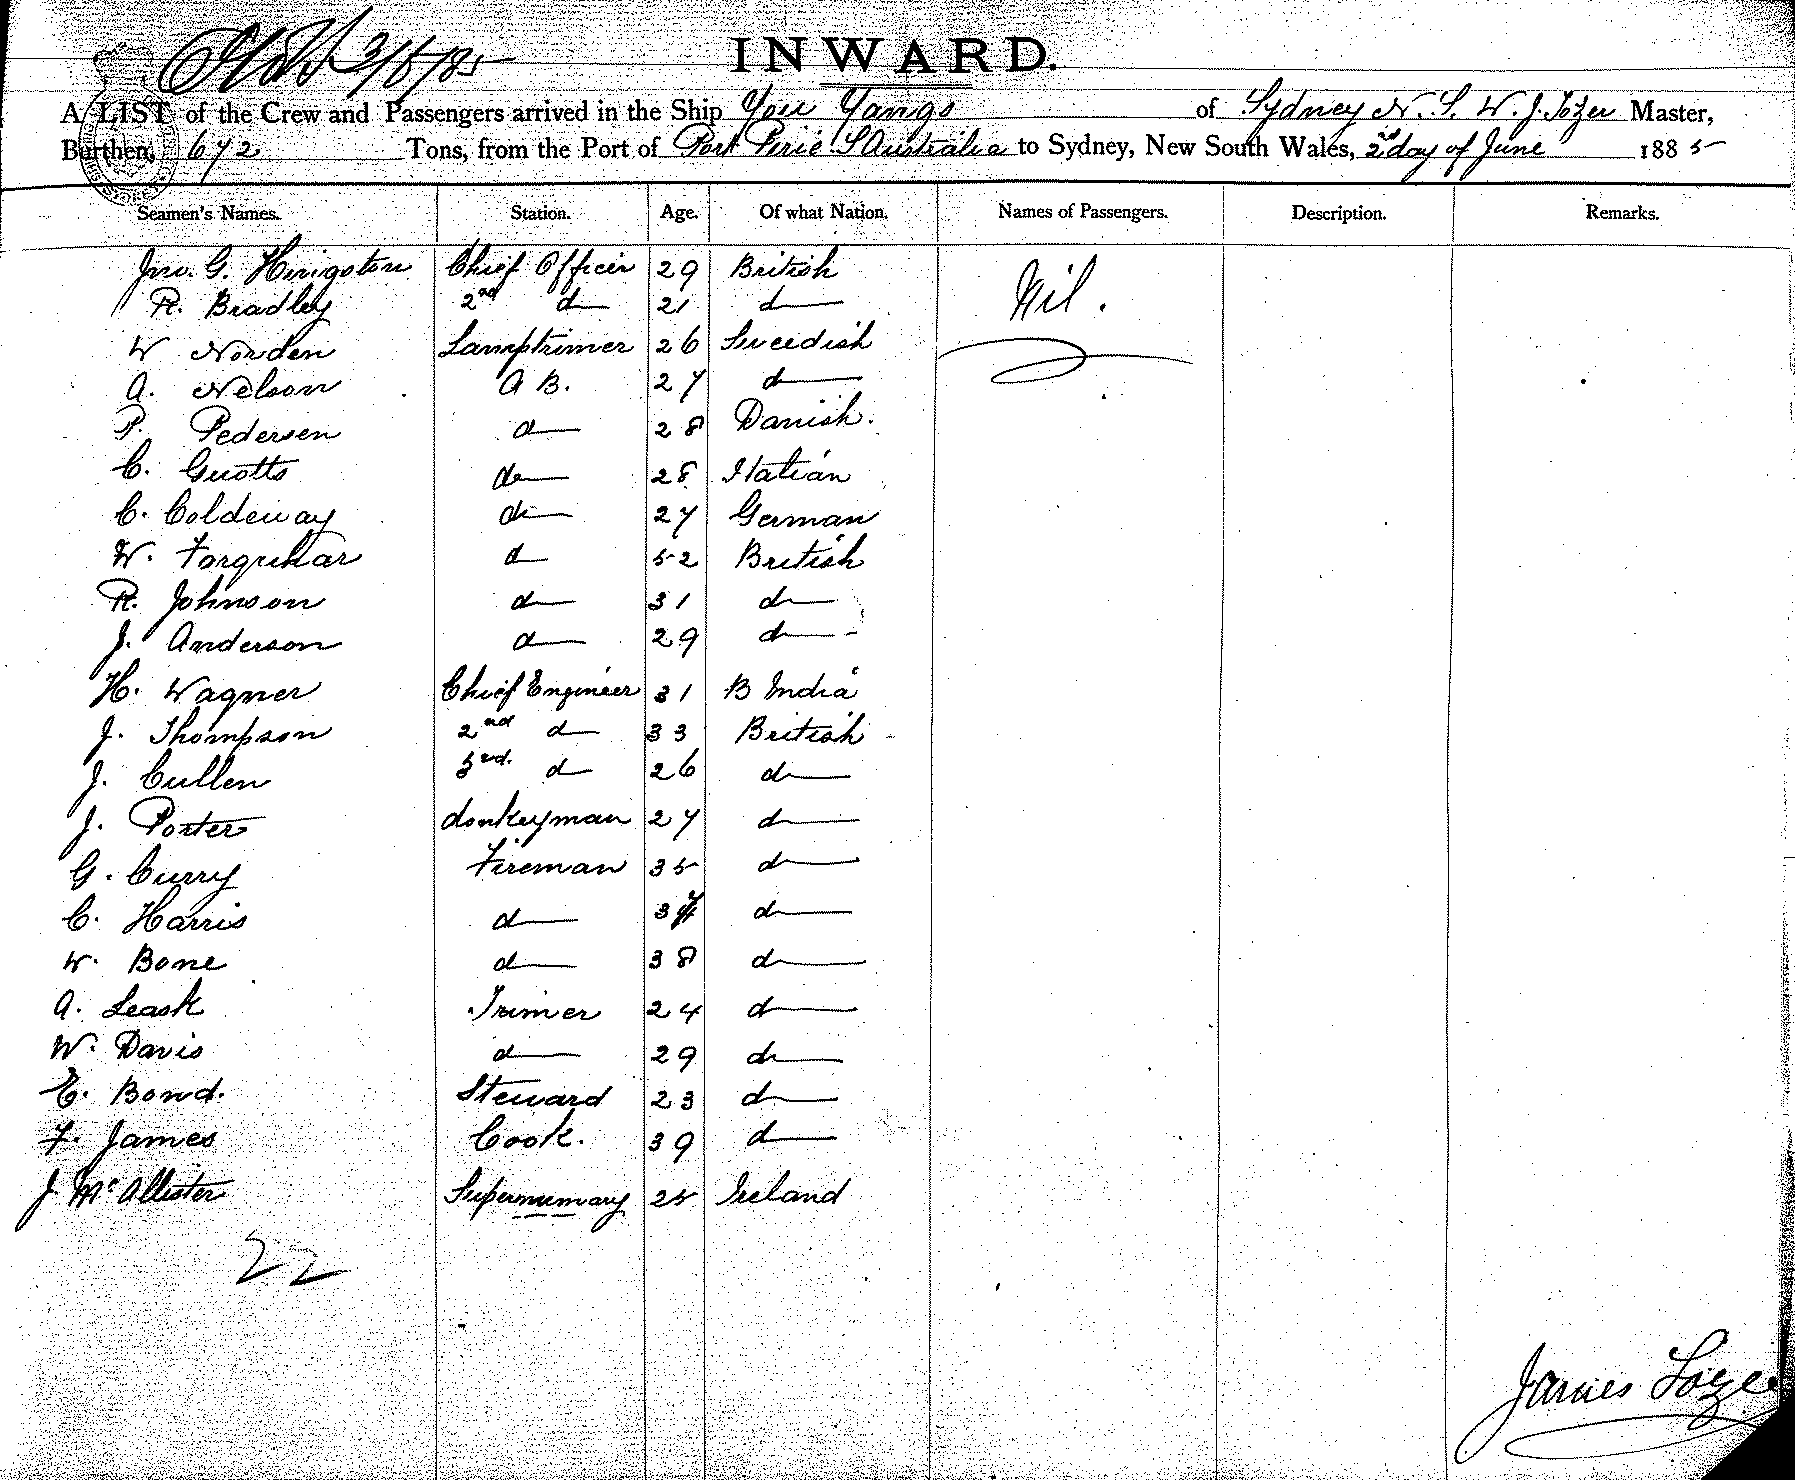 3/6/85
INWARD.
A LIST of the Crew and Passengers arrived in the Ship You Yangs of Sydney N. S. W. J. Tozer Master,
Burthen, 672 Tons, from the Port of Port Pirie S Australia to Sydney, New South Wales, 2nd day of June 1885
Seamen's Names. Station. Age. Of what Nation. Names of Passengers. Description. Remarks.
Jno. G. Hingston Chief Officer 29 British Nil.
R. Bradley 2nd d 21 d
W Norden Lamptrimer 26 Sweedish
A. Nelson A B. 27 d
P. Pedersen d 28 Danish.
C. Guotts do 28 Italian
C. Coldeway do 27 German
W. Farquhar d 52 British
R. Johnson d 31 d
J. Anderson d 29 d
H. Wagner Chief Engineer 31 B India
J. Thompson 2nd d 33 British
J. Cullen 3rd. d 26 d
J. Porter donkeyman 27 d
G. Curry Fireman 35 d
C. Harris d 37 d
W. Bone d 38 d
A. Leask Trimer 24 d
W. Davis d 29 d
E. Bond. Steward 23 d
F. James Cook. 39 d
J. McAllister Supernumary 25 Ireland
22
James Tozer